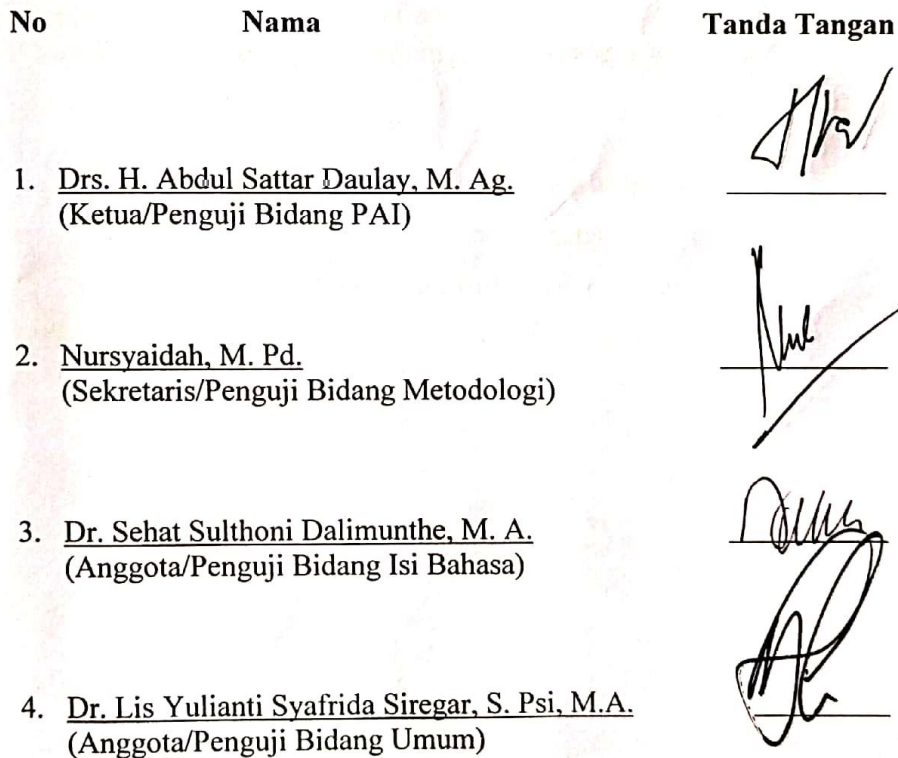 No Nama Tanda Tangan
1. Drs. H. Abdul Sattar Daulay, M. Ag.
(Ketua/Penguji Bidang PAI)
2. Nursyaidah, M. Pd.
(Sekretaris/Penguji Bidang Metodologi)
3. Dr. Sehat Sulthoni Dalimunthe, M. A.
(Anggota/Penguji Bidang Isi Bahasa)
4. Dr. Lis Yulianti Syafrida Siregar, S. Psi, M.A.
(Anggota/Penguji Bidang Umum)